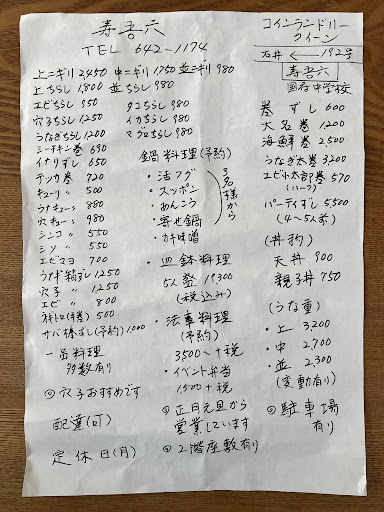 寿吾六
TEL 642-1174
コインランドリー
クィーン
石井 ← 192号
寿吾六
国府中学校
上ニギリ 2,450 中ニギリ 1750 並ニギリ 980
上ちらし 1,800 並ちらし 980
エビちらし 950 タコちらし 980
穴子ちらし 1250 イカちらし 980
うなぎちらし 1200 マグロちらし 980
シーチキン巻 690
イナリずし 650
テッカ巻 720
キューリ 〃 500
ウナキュー 〃 880
穴キュー 〃 980
シンコ 〃 550
シソ 〃 550
エビマヨ 700
うなぎ箱ずし 1250
穴子 〃 1250
エビ 〃 800
ネギトロ(巻) 500
サバ棒ずし(予約) 1000
一品料理
多数有り
◎穴子おすすめです
配達(可)
定休日(月)
鍋料理(予約)
・活フグ
・スッポン
・あんこう
・寄せ鍋
・カキ味噌
3名様から
・皿鉢料理
5人盛 19,300
(税込み)
・法事料理
(予約)
3500〜+税
・イベント弁当
1,500+税
◎正月元旦から
営業しています
◎2階座敷有り
巻ずし 600
大名巻 1200
海鮮巻 2,500
うなぎ太巻 3200
エビ小太郎巻 570
(ハーフ)
パーティずし 5,500
(4〜5人前)
(丼物)
天丼 900
親子丼 750
(うな重)
・上 3200
・中 2,700
・並 2,300
(変動有り)
◎駐車場
有り